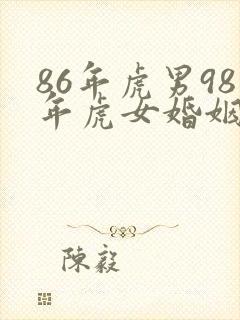 86年虎男98
年虎女婚姻
陳毅